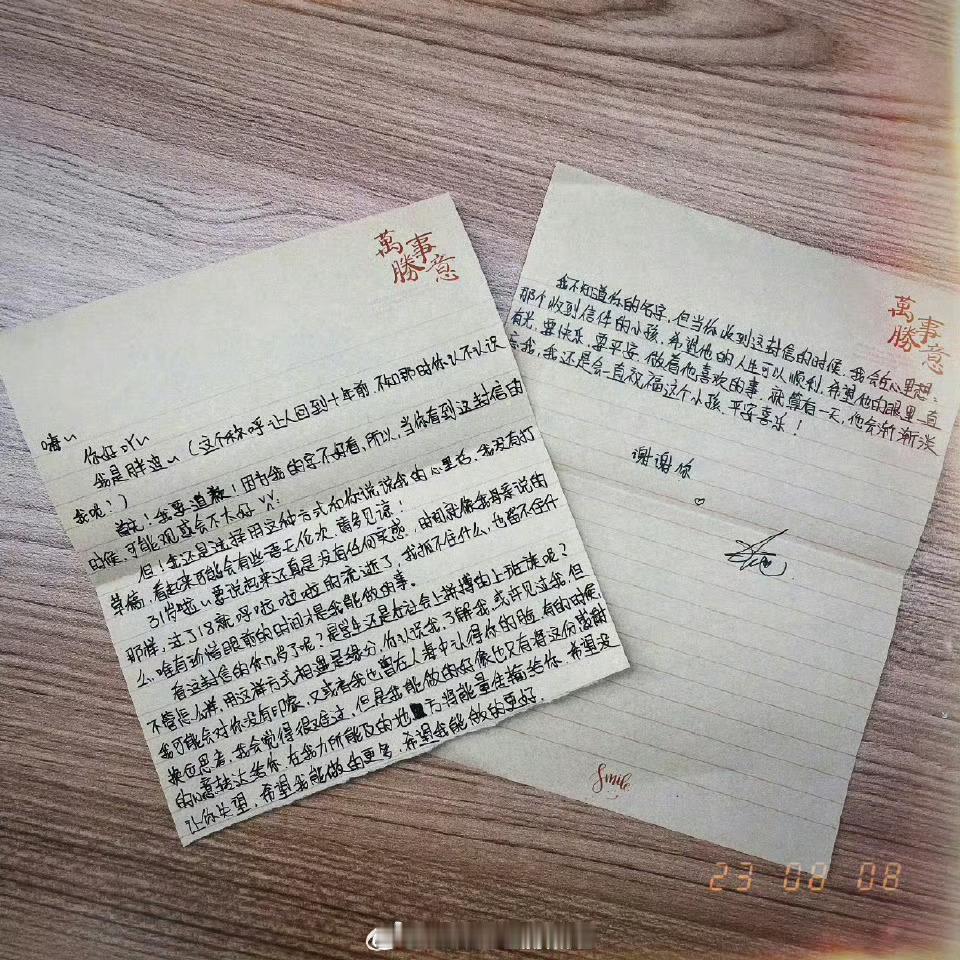 萬事勝意
嗨~
你好吖~
我是胖迪~（这个称呼让人回到十年前，不知那时你认不认识
我呢？）
首先！我要道歉！因为我的字不好看，所以，当你看到这封信的
时候，可能观感会不太好
但！我还是选择用这种方式和你说说我的心里话，我没有打
草稿，看起来可能会有些语无伦次，请多见谅！
31岁啦~要说起来还真是没有任何实感，时间就像我母亲说的
那样，过了18就呼啦啦啦的流逝了，我抓不住什么，也留不住什
么，唯有珍惜眼前的时间才是我能做的事。
看这封信的你几岁了呢？是学生还是在社会上拼搏的上班族呢？
不管怎么样，用这样方式相遇是缘分，你认识我，了解我，或许见过我，但
我可能会对你没有印象，又或者我也曾在人海中认得你的脸，有的时候
换位思考，我会觉得很难过，但是我能做的好像也只有将这份感谢
的心意转达给你，在我力所能及的地方将能量传输给你，希望没
让你失望，希望我能做的更多，希望我能做的更好。
萬事勝意
我不知道你的名字，但当你收到这封信的时候，我会在心里想，
那个收到信件的小孩，希望他的人生可以顺利，希望他的眼里直
有光，要快乐，要平安，做着他喜欢的事，就算有一天，他会渐渐淡
忘我，我还是会一直祝福这个小孩，平安喜乐！
谢谢你
Smile
23 08 08